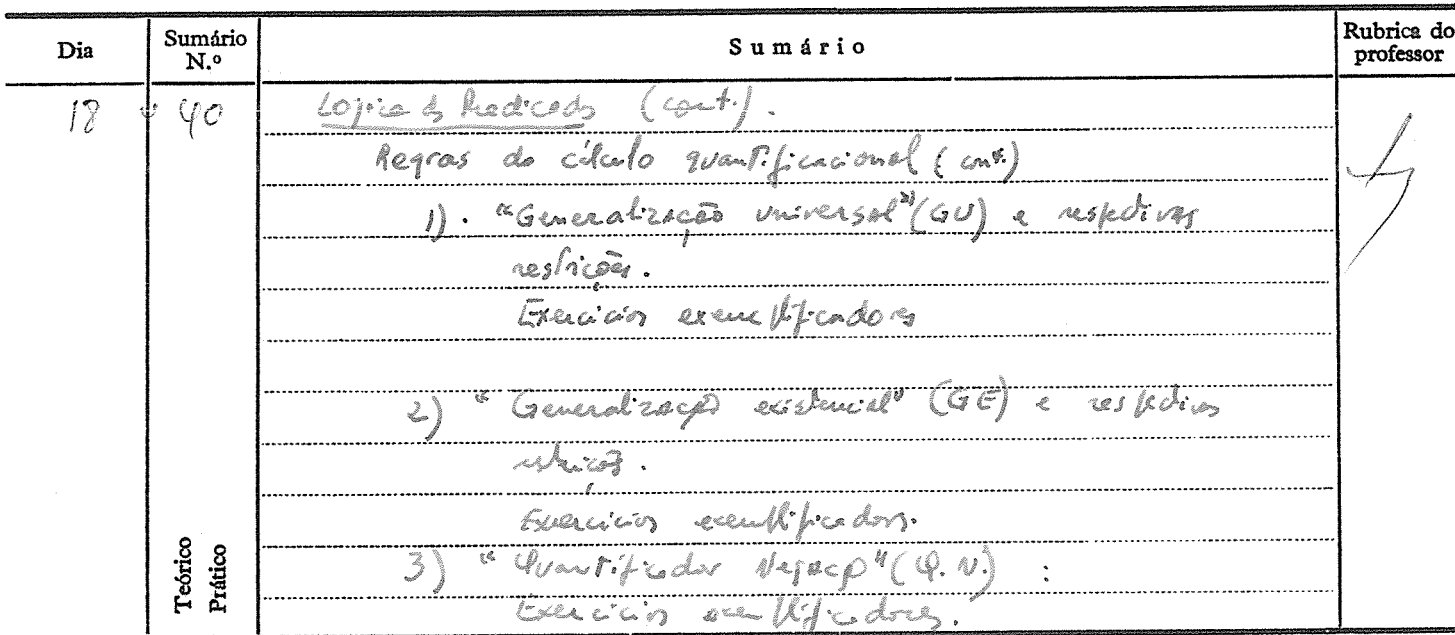 Dia Sumário N.º Sumário Rubrica do professor
18 40 Lógica dos Predicados (cont.).
Regras do cálculo quantificacional (cont.)
1). "Generalização universal" (GU) e respectivas
restrições.
Exercícios exemplificadores
2) "Generalização existencial" (GE) e respectivas
restrições.
Exercícios exemplificadores.
3) "Quantificador Negação" (Q.N.) :
Exercícios exemplificadores.
Teórico
Prático